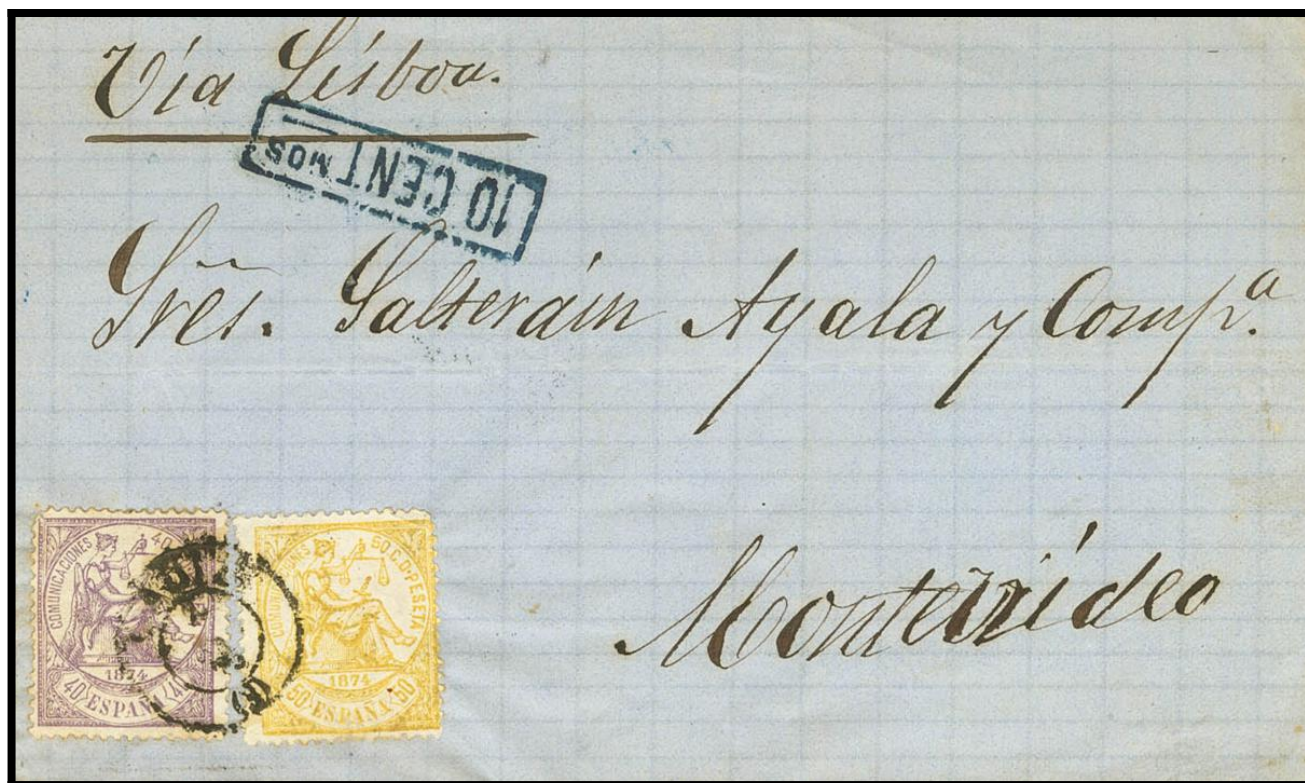 Via Lisboa.
10 CENT MOS
Sres. Salterain Ayala y Comp.a
Montevideo
COMUNICACIONES 40
1874
40 ESPAÑA 40
50 C. D. PESETA
1874
50 ESPAÑA 50